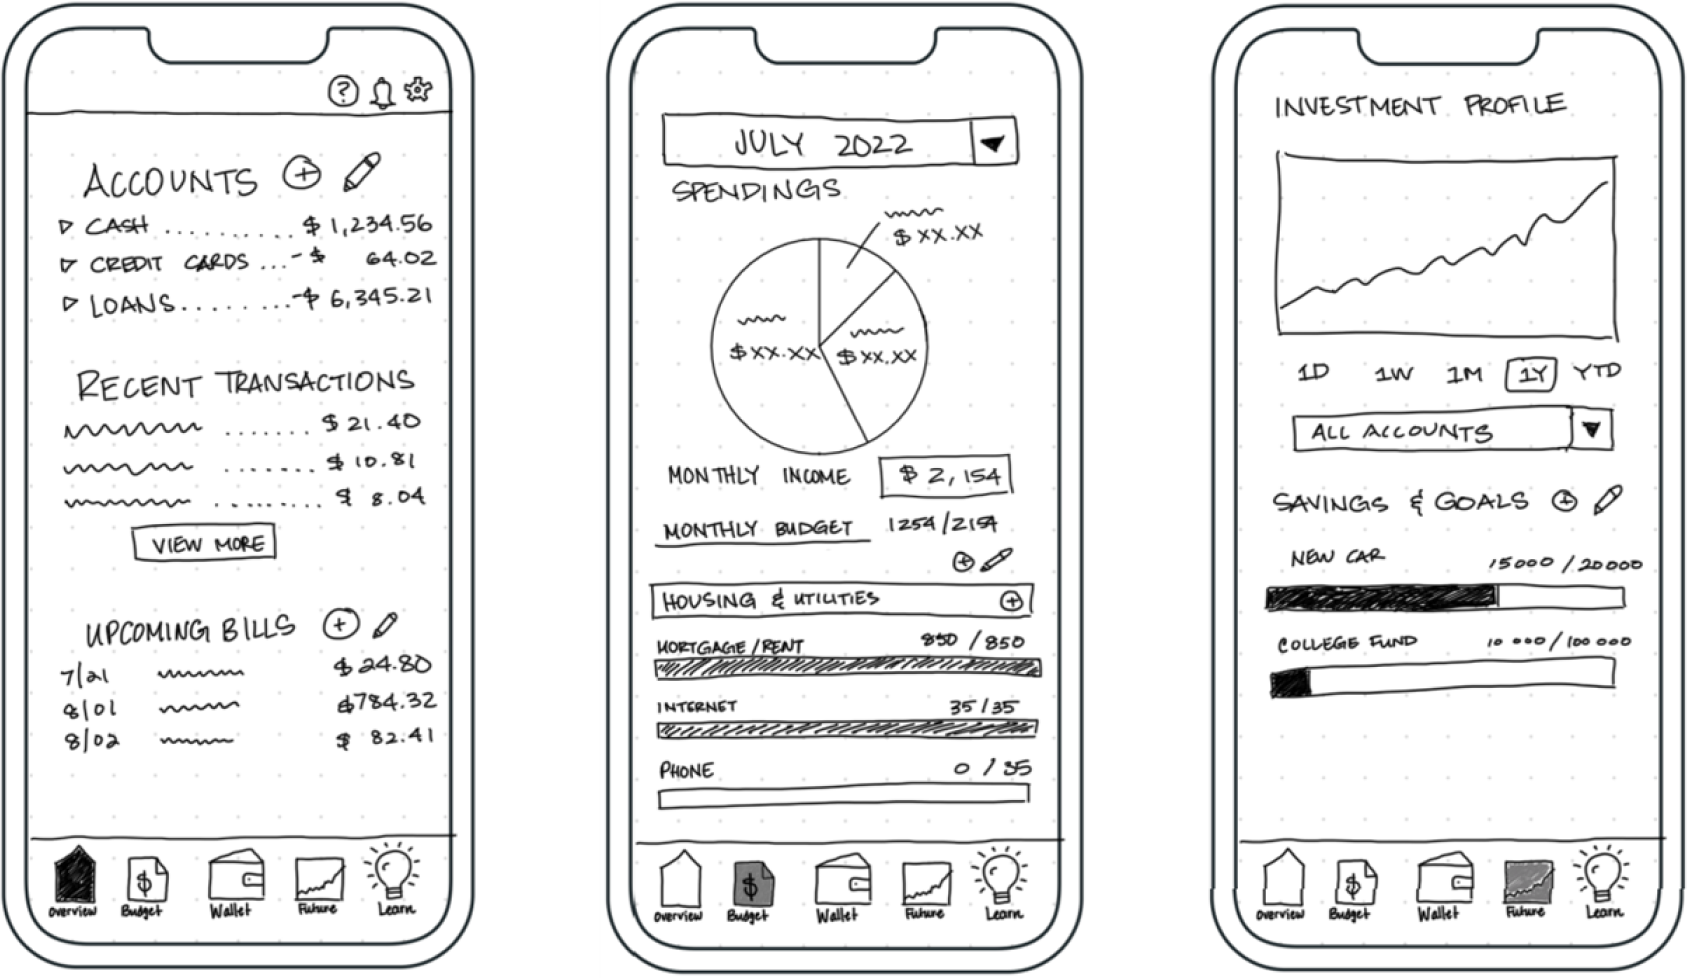 ?
ACCOUNTS +
CASH .......... $ 1,234.56
CREDIT CARDS ... -$ 64.02
LOANS ........ -$ 6,345.21
RECENT TRANSACTIONS
....... $ 21.40
....... $ 10.81
........ $ 8.04
VIEW MORE
UPCOMING BILLS +
7/21 $24.80
8/01 $784.32
8/02 $ 82.41
$
Overview Budget Wallet Future Learn
JULY 2022
SPENDINGS
$ XX.XX
$XX.XX $XX.XX
MONTHLY INCOME $ 2,154
MONTHLY BUDGET 1254/2154
+
HOUSING & UTILITIES +
MORTGAGE/RENT 850 / 850
INTERNET 35/35
PHONE 0 / 35
$
Overview Budget Wallet Future Learn
INVESTMENT PROFILE
1D 1W 1M 1Y YTD
ALL ACCOUNTS
SAVINGS & GOALS +
NEW CAR 15000 / 20000
COLLEGE FUND 10 000/100 000
$
Overview Budget Wallet Future Learn